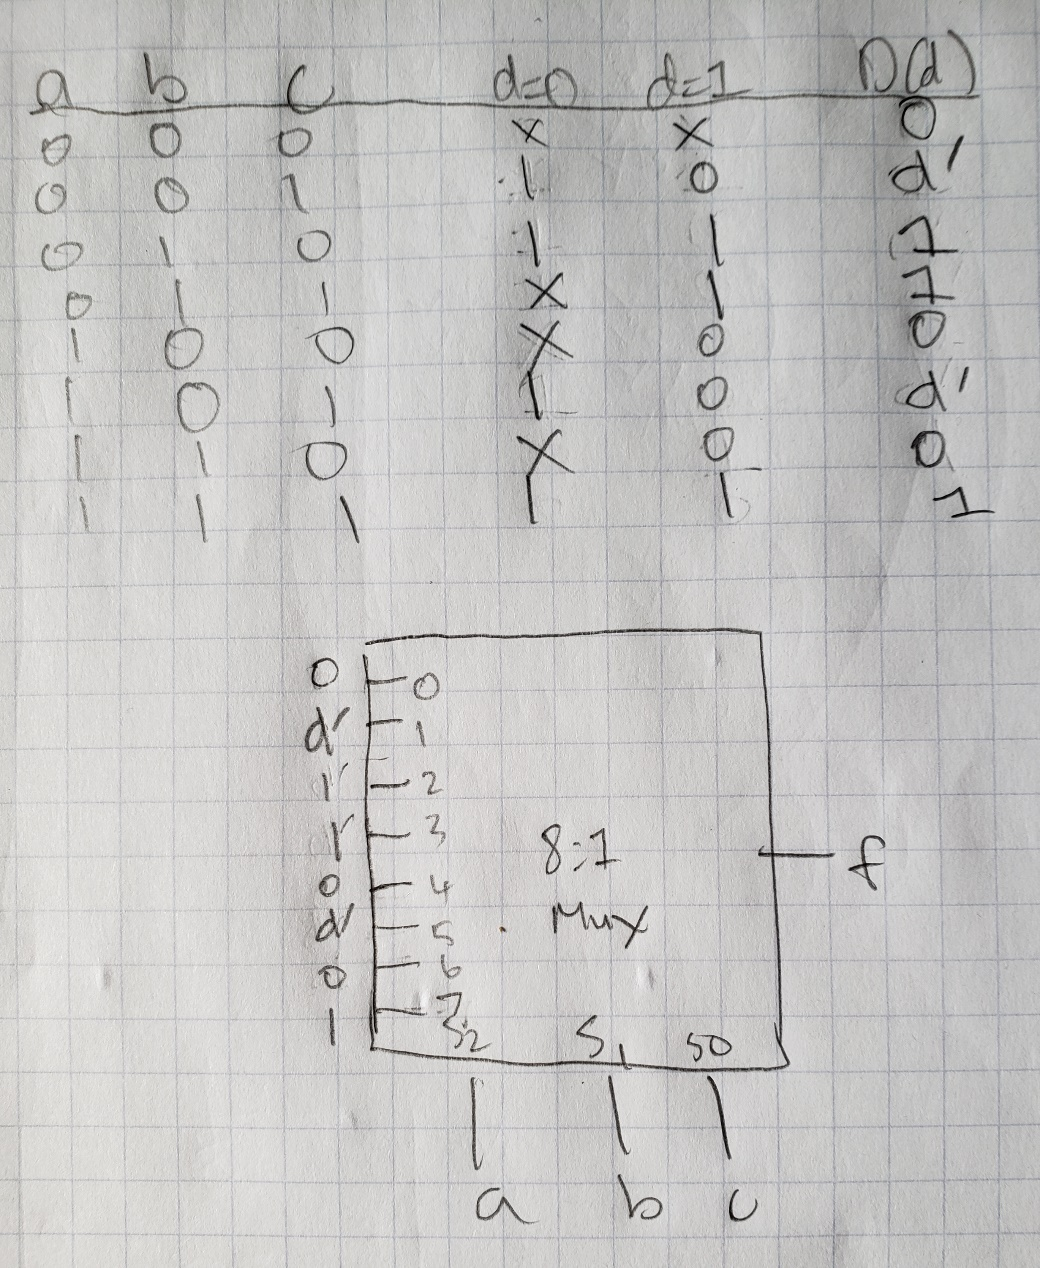 a b c d=0 d=1 D(d)
0 0 0 x x 0
0 0 1 1 0 d'
0 1 0 1 1 1
0 1 1 X 1 1
1 0 0 X 0 0
1 0 1 1 0 d'
1 1 0 X 0 0
1 1 1 1 1 1
0 0
d' 1
1 2
1 3
8:1 f
0 4
d' 5 Mux
0 6
1 7
S2 S1 S0
a b c